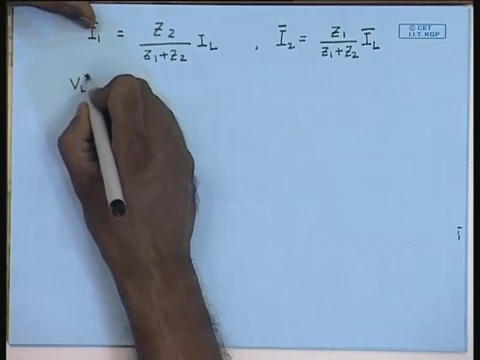 Ī₁ = Z₂/(Z₁+Z₂) I_L , Ī₂ = Z₁/(Z₁+Z₂) Ī_L
© CET
I.I.T. KGP
V_L